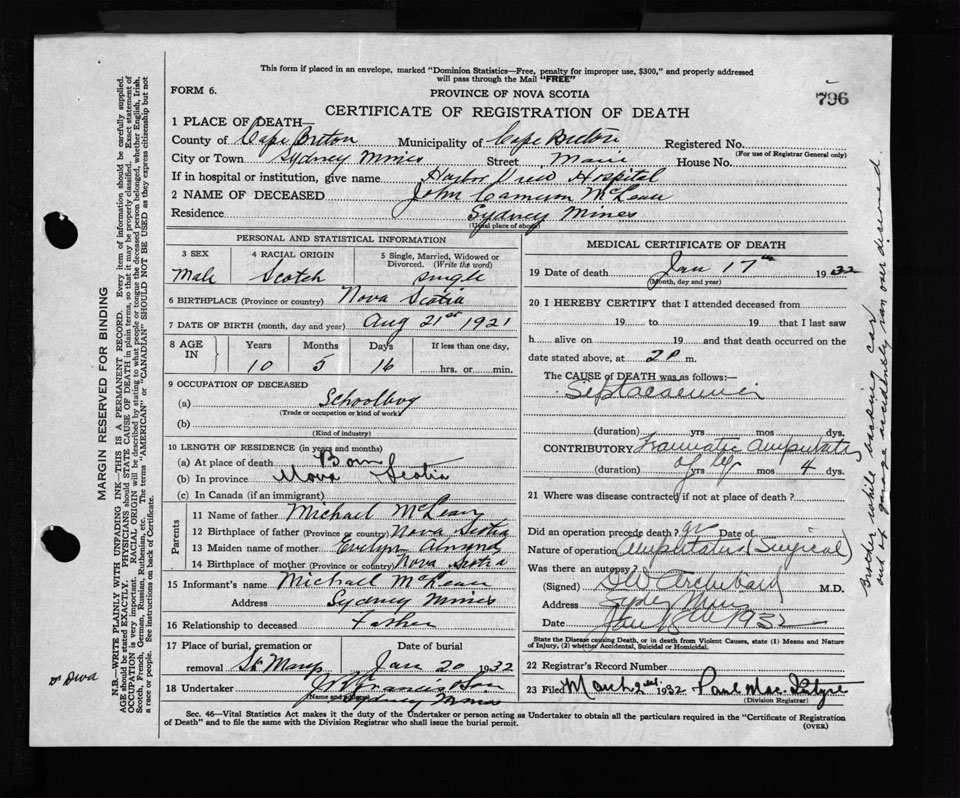 This form if placed in an envelope, marked "Dominion Statistics—Free, penalty for improper use, $300," and properly addressed
will pass through the Mail "FREE"
FORM 6.
PROVINCE OF NOVA SCOTIA
796
CERTIFICATE OF REGISTRATION OF DEATH
1 PLACE OF DEATH—
County of Cape Breton Municipality of Cape Breton Registered No.
(For use of Registrar General only)
City or Town Sydney Mines Street Main House No.
If in hospital or institution, give name Harbor View Hospital
2 NAME OF DECEASED John Cameron McLean
Residence Sydney Mines
(Usual place of abode)
PERSONAL AND STATISTICAL INFORMATION
3 SEX Male
4 RACIAL ORIGIN Scotch
5 Single, Married, Widowed or Divorced. (Write the word) single
6 BIRTHPLACE (Province or country) Nova Scotia
7 DATE OF BIRTH (month, day and year) Aug 21st 1921
8 AGE IN Years Months Days If less than one day,
10 5 16 hrs. or min.
9 OCCUPATION OF DECEASED
(a) Schoolboy
(Trade or occupation or kind of work)
(b)
(Kind of industry)
10 LENGTH OF RESIDENCE (in years and months)
(a) At place of death Born
(b) In province Nova Scotia
(c) In Canada (if an immigrant)
Parents
11 Name of father Michael McLean
12 Birthplace of father (Province or country) Nova Scotia
13 Maiden name of mother Evelyn
14 Birthplace of mother (Province or country) Nova Scotia
15 Informant's name Michael McLean
Address Sydney Mines
16 Relationship to deceased Father
17 Place of burial, cremation or removal St Marys
Date of burial Jan 20 1932
18 Undertaker Francis & Son
Sydney Mines
MEDICAL CERTIFICATE OF DEATH
19 Date of death Jan 17th 1932
(Month, day and year)
20 I HEREBY CERTIFY that I attended deceased from
19 to 19 that I last saw
h alive on 19 and that death occurred on the
date stated above, at 2 P m.
The CAUSE of DEATH was as follows:—
Septacaemia
(duration) yrs mos dys.
CONTRIBUTORY Traumatic Amputation
of leg
(duration) yrs mos 4 dys.
21 Where was disease contracted if not at place of death?
Did an operation precede death? Date of
Nature of operation Amputation (Surgical)
Was there an autopsy?
(Signed) Archibald M.D.
Address Sydney Mines
Date 1932
State the Disease causing Death, or in death from Violent Causes, state (1) Means and Nature
of Injury, (2) whether Accidental, Suicidal or Homicidal.
22 Registrar's Record Number
23 Filed March 2nd 1932 Paul Mac.
(Division Registrar)
Sec. 46—Vital Statistics Act makes it the duty of the Undertaker or person acting as Undertaker to obtain all the particulars required in the "Certificate of Registration
of Death" and to file the same with the Division Registrar who shall issue the burial permit.
(OVER)
MARGIN RESERVED FOR BINDING
N.B.—WRITE PLAINLY WITH UNFADING INK—THIS IS A PERMANENT RECORD. Every item of information should be carefully supplied.
AGE should be stated EXACTLY. PHYSICIANS should STATE CAUSE OF DEATH in plain terms, so that it may be properly classified. Exact statement of
OCCUPATION is very important. RACIAL ORIGIN will be described by stating to what people or tongue the deceased person belonged, whether English, Irish,
Scotch, French, German, Russian, Ruthenian, etc. The terms "AMERICAN" or "CANADIAN" SHOULD NOT BE USED as they express citizenship but not
a race or people. See instructions on back of Certificate.
Brother while backing car
out of garage accidently ran over diseased